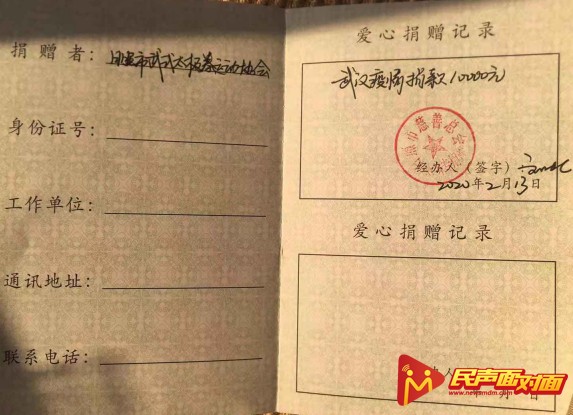 捐赠者：市武式太极拳运动协会
身份证号：
工作单位：
通讯地址：
联系电话：
爱心捐赠记录
武汉疫情捐款10000元
市慈善总会
经办人（签字）
2020年2月13日
爱心捐赠记录
人
月 日
民声面对面
www.newsmdm.com